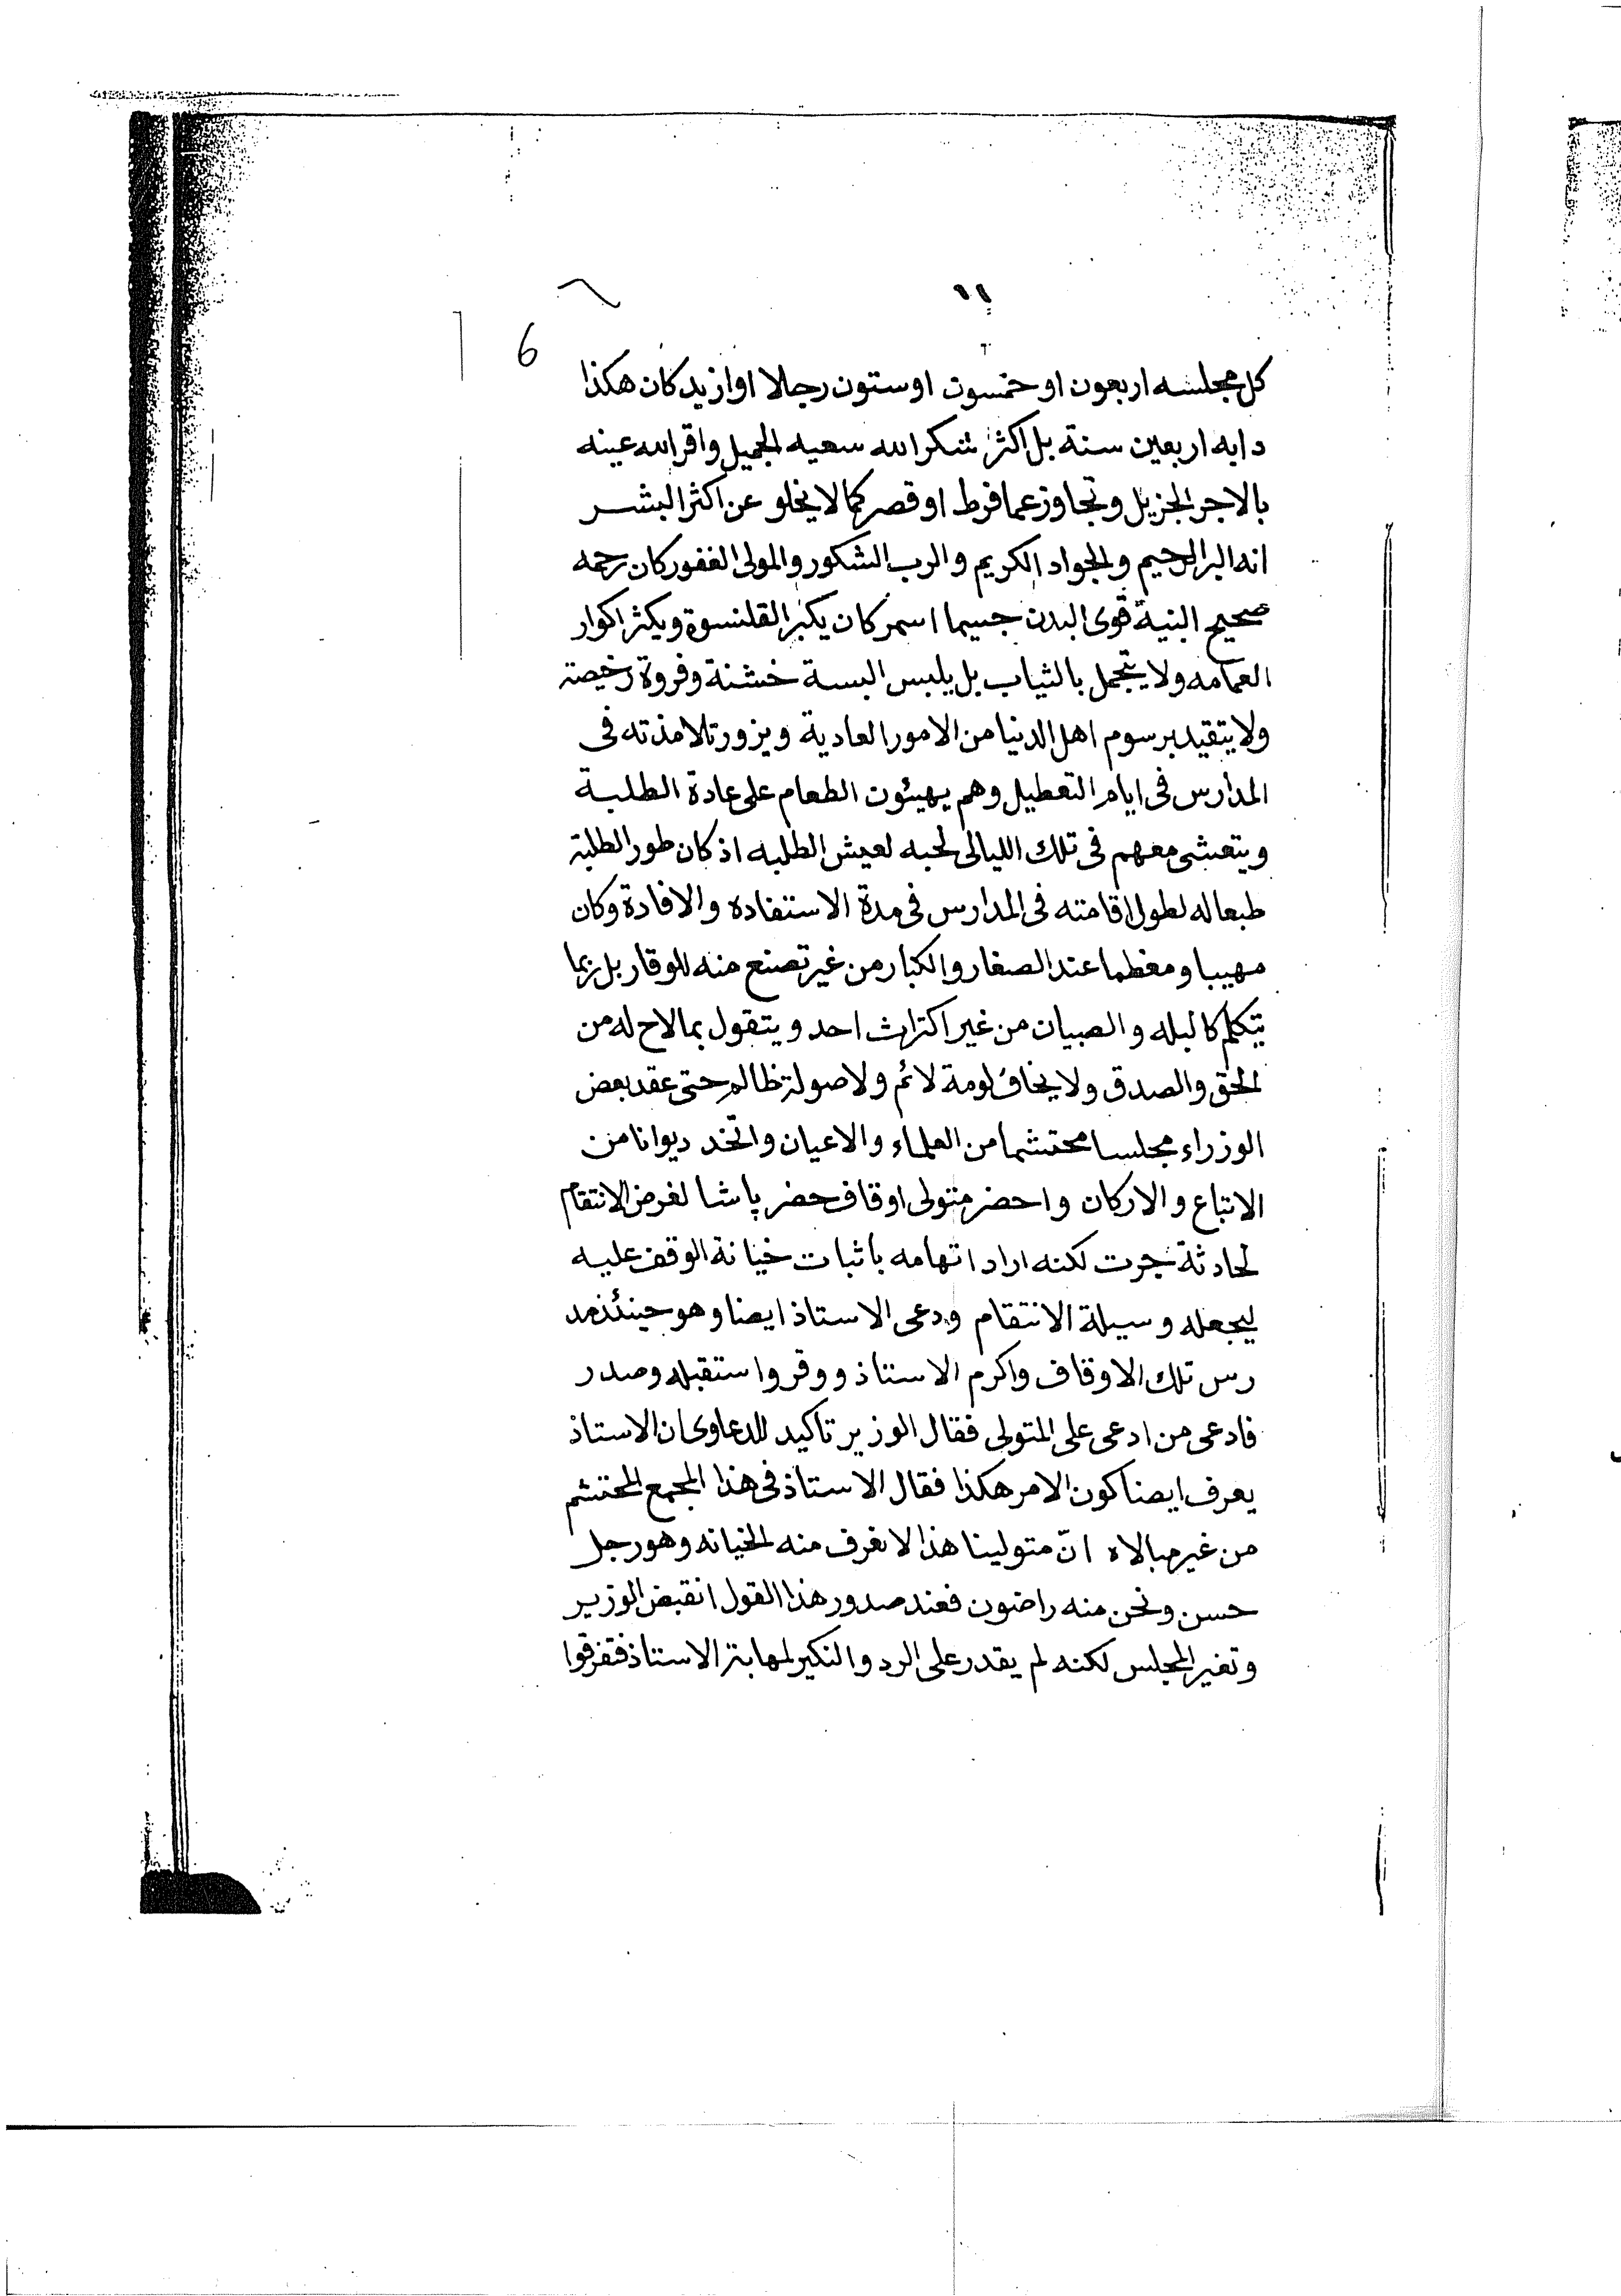 ١١
6
كل مجلسه اربعون او خمسون او ستون رجالا او ازيد كان هكذا
دابه اربعين سنة بل اكثر شكر الله سعيه الجميل واقر الله عينه
بالاجر الجزيل وتجاوز عما فرط او قصر كما لا يخلو عن اكثر البشر
انه البر الرحيم والجواد الكريم والرب الشكور والمولى الغفور كان رحمه
صحيح البنية قوى البدن جسيما اسمر كان يكبر القلنسوة ويكثر اكوار
العمامه ولا يتجمل بالثياب بل يلبس البسة خشنة وفروة رخيصة
ولا يتقيد برسوم اهل الدنيا من الامور العادية ويزور تلامذته فى
المدارس فى ايام التعطيل وهم يهيئون الطعام على عادة الطلبة
ويتعشى معهم فى تلك الليالى لحبه لعيش الطلبه اذ كان طور الطلبة
طبعا له لطول اقامته فى المدارس فى مدة الاستفاده والافادة وكان
مهيبا ومغظما عند الصغار والكبار من غير تصنع منه للوقار بل ربما
يتكلم كالبله والصبيان من غير اكتراث احد ويتقول بما لاح له من
الحق والصدق ولا يخاف لومة لائم ولا صولة ظالم حتى عقد بعض
الوزراء مجلسا محتشما من العلماء والاعيان واتخد ديوانا من
الاتباع والاركان واحضر متولى اوقاف حضر پاشا لغرض الانتقام
لحادثة جرت لكنه اراد اتهامه باثبات خيانة الوقف عليه
ليجعله وسيلة الانتقام ودعى الاستاذ ايضا وهو حينئذ مد
رس تلك الاوقاف واكرم الاستاذ ووقر واستقبله وصدر
فادعى من ادعى على المتولى فقال الوزير تاكيد للدعاوى ان الاستاذ
يعرف ايضا كون الامر هكذا فقال الاستاذ فى هذا المجمع المحتشم
من غير مبالاه انّ متولينا هذا لا نغرف منه الخيانه وهو رجل
حسن ونحن منه راضون فعند صدور هذا القول انقبض الوزير
وتغير المجلس لكنه لم يقدر على الرد والنكير لمهابة الاستاذ فتفرقوا